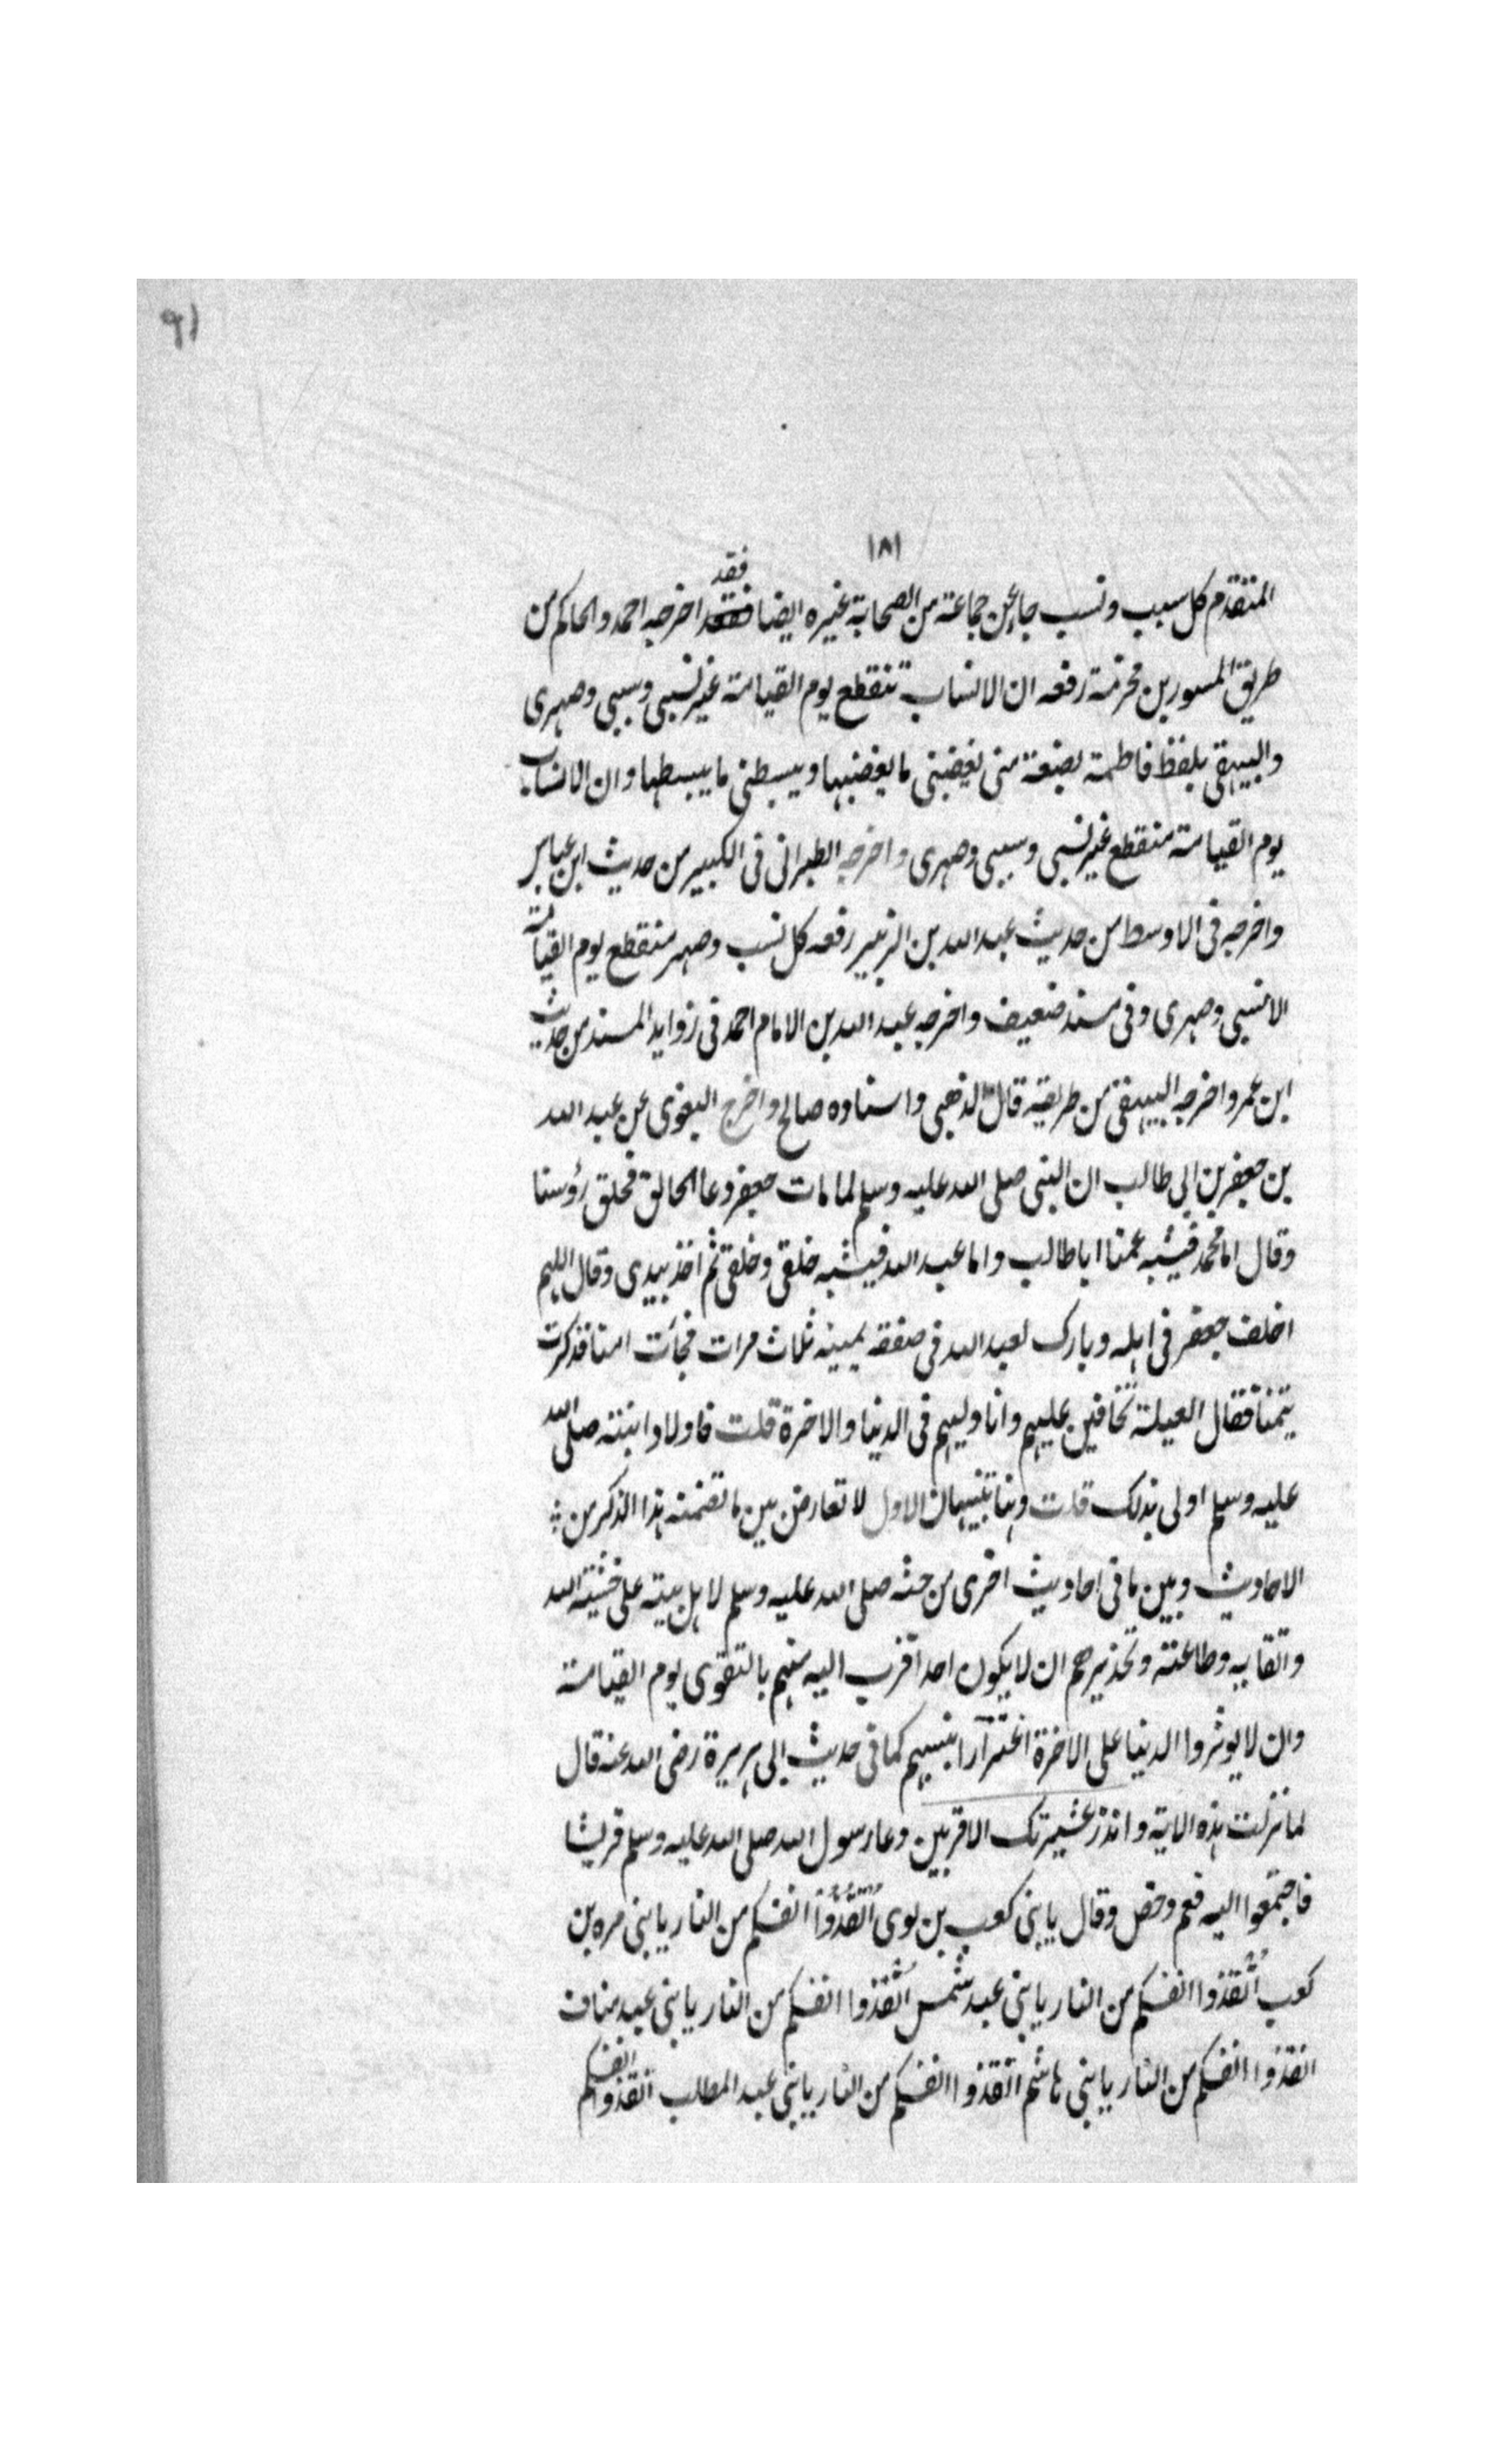 ٩١
١٨١
المتقدم كل سبب ونسب جاء عن جماعة من الصحابة غيره ايضا فقد اخرجه احمد والحاكم من
طريق المسور بن مخرمة رفعه ان الانساب تنقطع يوم القيامة غير نسبي وسببي وصهرى
والبيهقى بلفظ فاطمة بضعة منى يغضبنى ما يغضبها ويبسطنى ما يبسطها وان الانساب
يوم القيامة منقطع غير نسبي وسببي وصهرى واخرجه الطبرانى فى الكبير من حديث ابن عباس
واخرجه فى الاوسط من حديث عبد الله بن الزبير رفعه كل نسب وصهر منقطع يوم القيامة
الا نسبي وصهرى وفى سند ضعيف واخرجه عبد الله بن الامام احمد فى زوايد المسند من حديث
ابن عمر واخرجه البيهقى من طريقه قال الذهبى واسناده صالح واخرج البغوى عن عبد الله
بن جعفر بن ابى طالب ان النبى صلى الله عليه وسلم لما مات جعفر دعا الحالق فحلق رؤسنا
وقال اما محمد فيشبه عمنا ابا طالب واما عبد الله فيشبه خلقى وخلقى ثم اخذ بيدى وقال اللهم
اخلف جعفر فى اهله وبارك لعبد الله فى صفقة يمينه ثلاث مرات فجات امنا فذكرت
يتمنا فقال العيلة تخافين عليهم وانا وليهم فى الدنيا والاخرة قلت فاولاد ابنته صلى الله
عليه وسلم اولى بذلك قلت وهنا تنبيهان الاول لا تعارض بين ما تضمنه هذا الذكر من
الاحاديث وبين ما فى احاديث اخرى من حثه صلى الله عليه وسلم لاهل بيته على خشية الله
واتقايه وطاعته وتحذيرهم ان لا يكون احد اقرب اليه منهم بالتقوى يوم القيامة
وان لا يوثروا الدنيا على الاخرة اغترارا بنسبهم كما فى حديث ابى هريرة رضى الله عنه قال
لما نزلت هذه الاية وانذر عشيرتك الاقربين دعا رسول الله صلى الله عليه وسلم قريشا
فاجتمعوا اليه فعم وخص وقال يا بنى كعب بن لوى انقذوا انفسكم من النار يا بنى مره بن
كعب انقذوا انفسكم من النار يا بنى عبد شمس انقذوا انفسكم من النار يا بنى عبد مناف
انقذوا انفسكم من النار يا بنى هاشم انقذوا انفسكم من النار يا بنى عبد المطلب انقذوا انفسكم